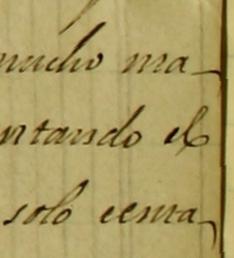 mucho ma-
ntando el
solo cema-